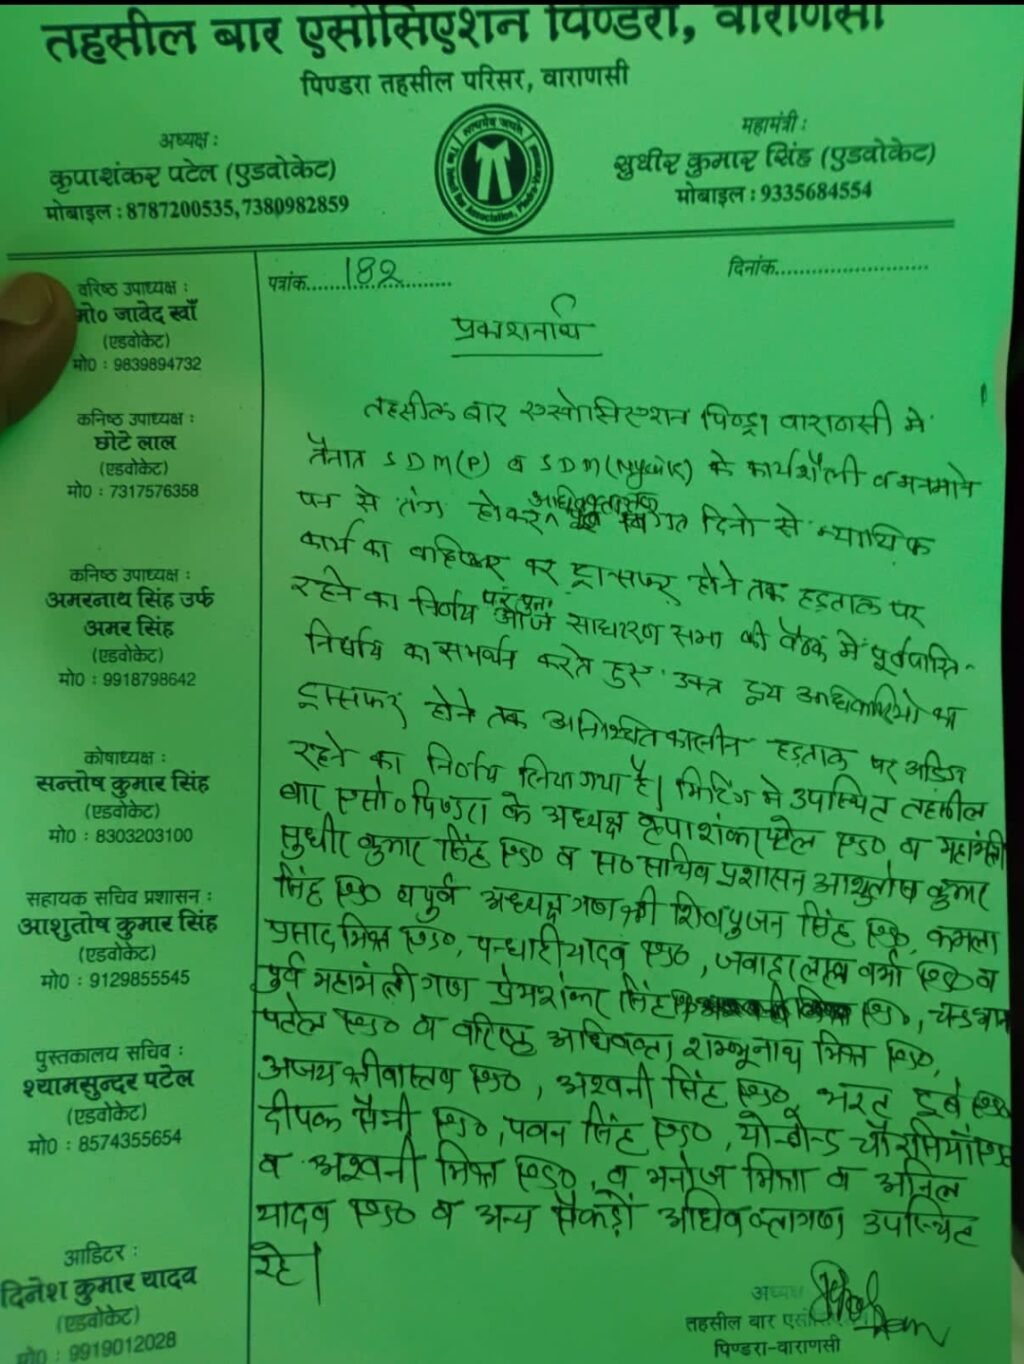 तहसील बार एसोसिएशन पिण्डरा, वाराणसी
पिण्डरा तहसील परिसर, वाराणसी
अध्यक्ष :
कृपाशंकर पटेल (एडवोकेट)
मोबाइल : 8787200535, 7380982859
महामंत्री :
सुधीर कुमार सिंह (एडवोकेट)
मोबाइल : 9335684554
पत्रांक......182......
दिनांक..............................
वरिष्ठ उपाध्यक्ष :
मो० जावेद खाँ
(एडवोकेट)
मो0 : 9839894732
कनिष्ठ उपाध्यक्ष :
छोटे लाल
(एडवोकेट)
मो0 : 7317576358
कनिष्ठ उपाध्यक्ष :
अमरनाथ सिंह उर्फ
अमर सिंह
(एडवोकेट)
मो0 : 9918798642
कोषाध्यक्ष :
सन्तोष कुमार सिंह
(एडवोकेट)
मो0 : 8303203100
सहायक सचिव प्रशासन :
आशुतोष कुमार सिंह
(एडवोकेट)
मो0 : 9129855545
पुस्तकालय सचिव :
श्यामसुन्दर पटेल
(एडवोकेट)
मो0 : 8574355654
आडिटर :
दिनेश कुमार यादव
(एडवोकेट)
मो0 : 9919012028
प्रकाशनार्थ
तहसील बार एसोसिएशन पिण्ड्रा वाराणसी मे
तैनात SDM(P) व SDM(न्यायिक) के कार्यशैली व मनमाने
पन से तंग होकर अधिवक्तागण गत दिनो से न्यायिक
कार्य का वहिष्कार कर ट्रान्सफर होने तक हड़ताल पर
रहने का निर्णय पर पुनः आज साधारण सभा की बैठक में पूर्वपारित
निर्णय का समर्थन करते हुए उक्त द्वय अधिकारियो का
ट्रान्सफर होने तक अनिश्चित कालीन हड़ताल पर अडिग
रहने का निर्णय लिया गया है। मिटिंग मे उपस्थित तहसील
बार एसो० पिण्डरा के अध्यक्ष कृपाशंकर पटेल एड० व महामंत्री
सुधीर कुमार सिंह एड० व स० सचिव प्रशासन आशुतोष कुमार
सिंह एड० व पुर्व अध्यक्ष गण श्री शिवपुजन सिंह एड०, कमला
प्रसाद मिश्रा एड०, पन्धारी यादव एड०, जवाहर लाल वर्मा एड० व
पुर्व महामंत्री गण प्रेमशंकर सिंह एड०,
पटेल एड० व वरिष्ठ अधिवक्ता शम्भूनाथ मिश्रा एड०,
अजय श्रीवास्तव एड०, अश्वनी सिंह एड०, भरत दुबे एड०
दीपक सैनी एड०, पवन सिंह एड०, चौरसिया एड०
व अश्वनी मिश्रा एड०, व मनोज मिश्रा व अनिल
यादव एड० व अन्य सैकड़ों अधिवक्तागण उपस्थित
रहे।
अध्यक्ष
तहसील बार एसोसिएशन
पिण्डरा-वाराणसी